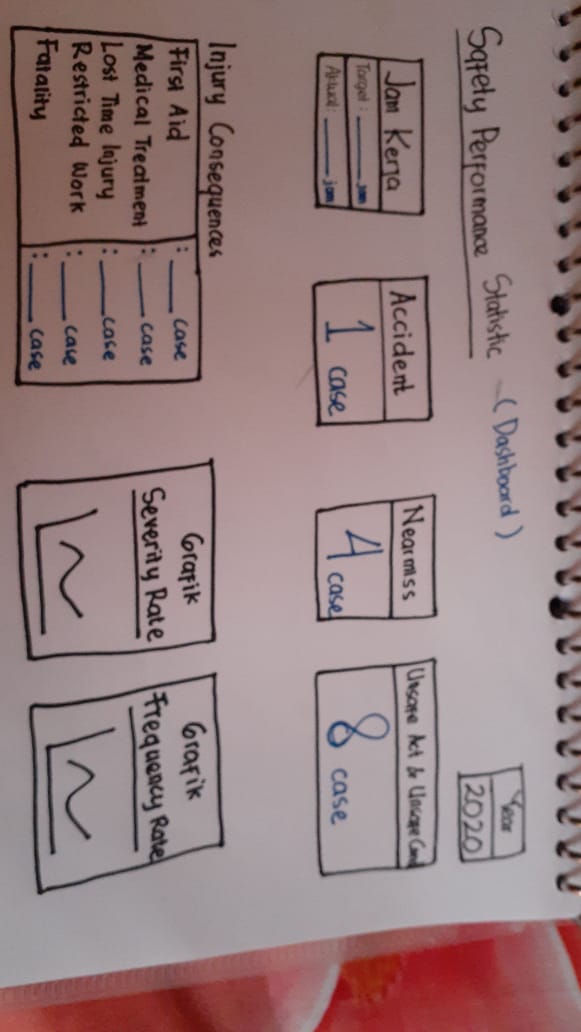 Safety Performance Statistic - (Dashboard)
Year
2020
Jam Kerja
Target : ___ jam
Aktual : ___ jam
Accident
1 case
Nearmiss
4 case
Unsafe Act & Unsafe Cond
8 case
Injury Consequences
First Aid : ___ case
Medical Treatment : ___ case
Lost Time Injury : ___ case
Restricted Work : ___ case
Fatality : ___ case
Grafik
Severity Rate
Grafik
Frequency Rate